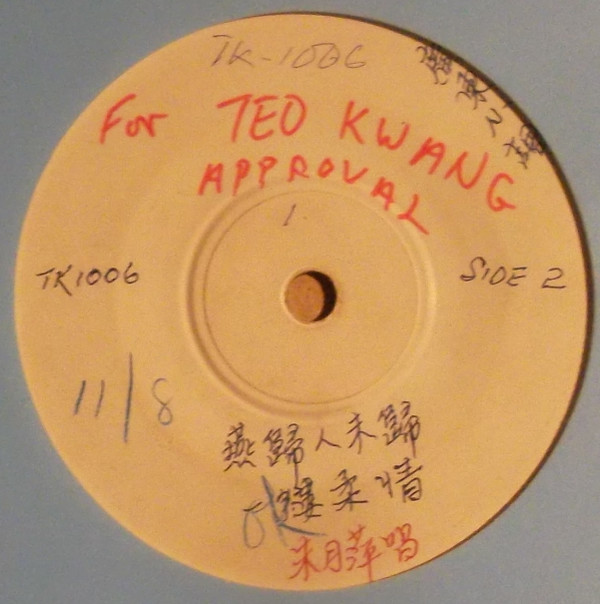 TK-1006
For TEO KWANG
APPROVAL
1
TK1006
SIDE 2
11/8
燕歸人未歸
縷柔情
OK
朱月萍唱